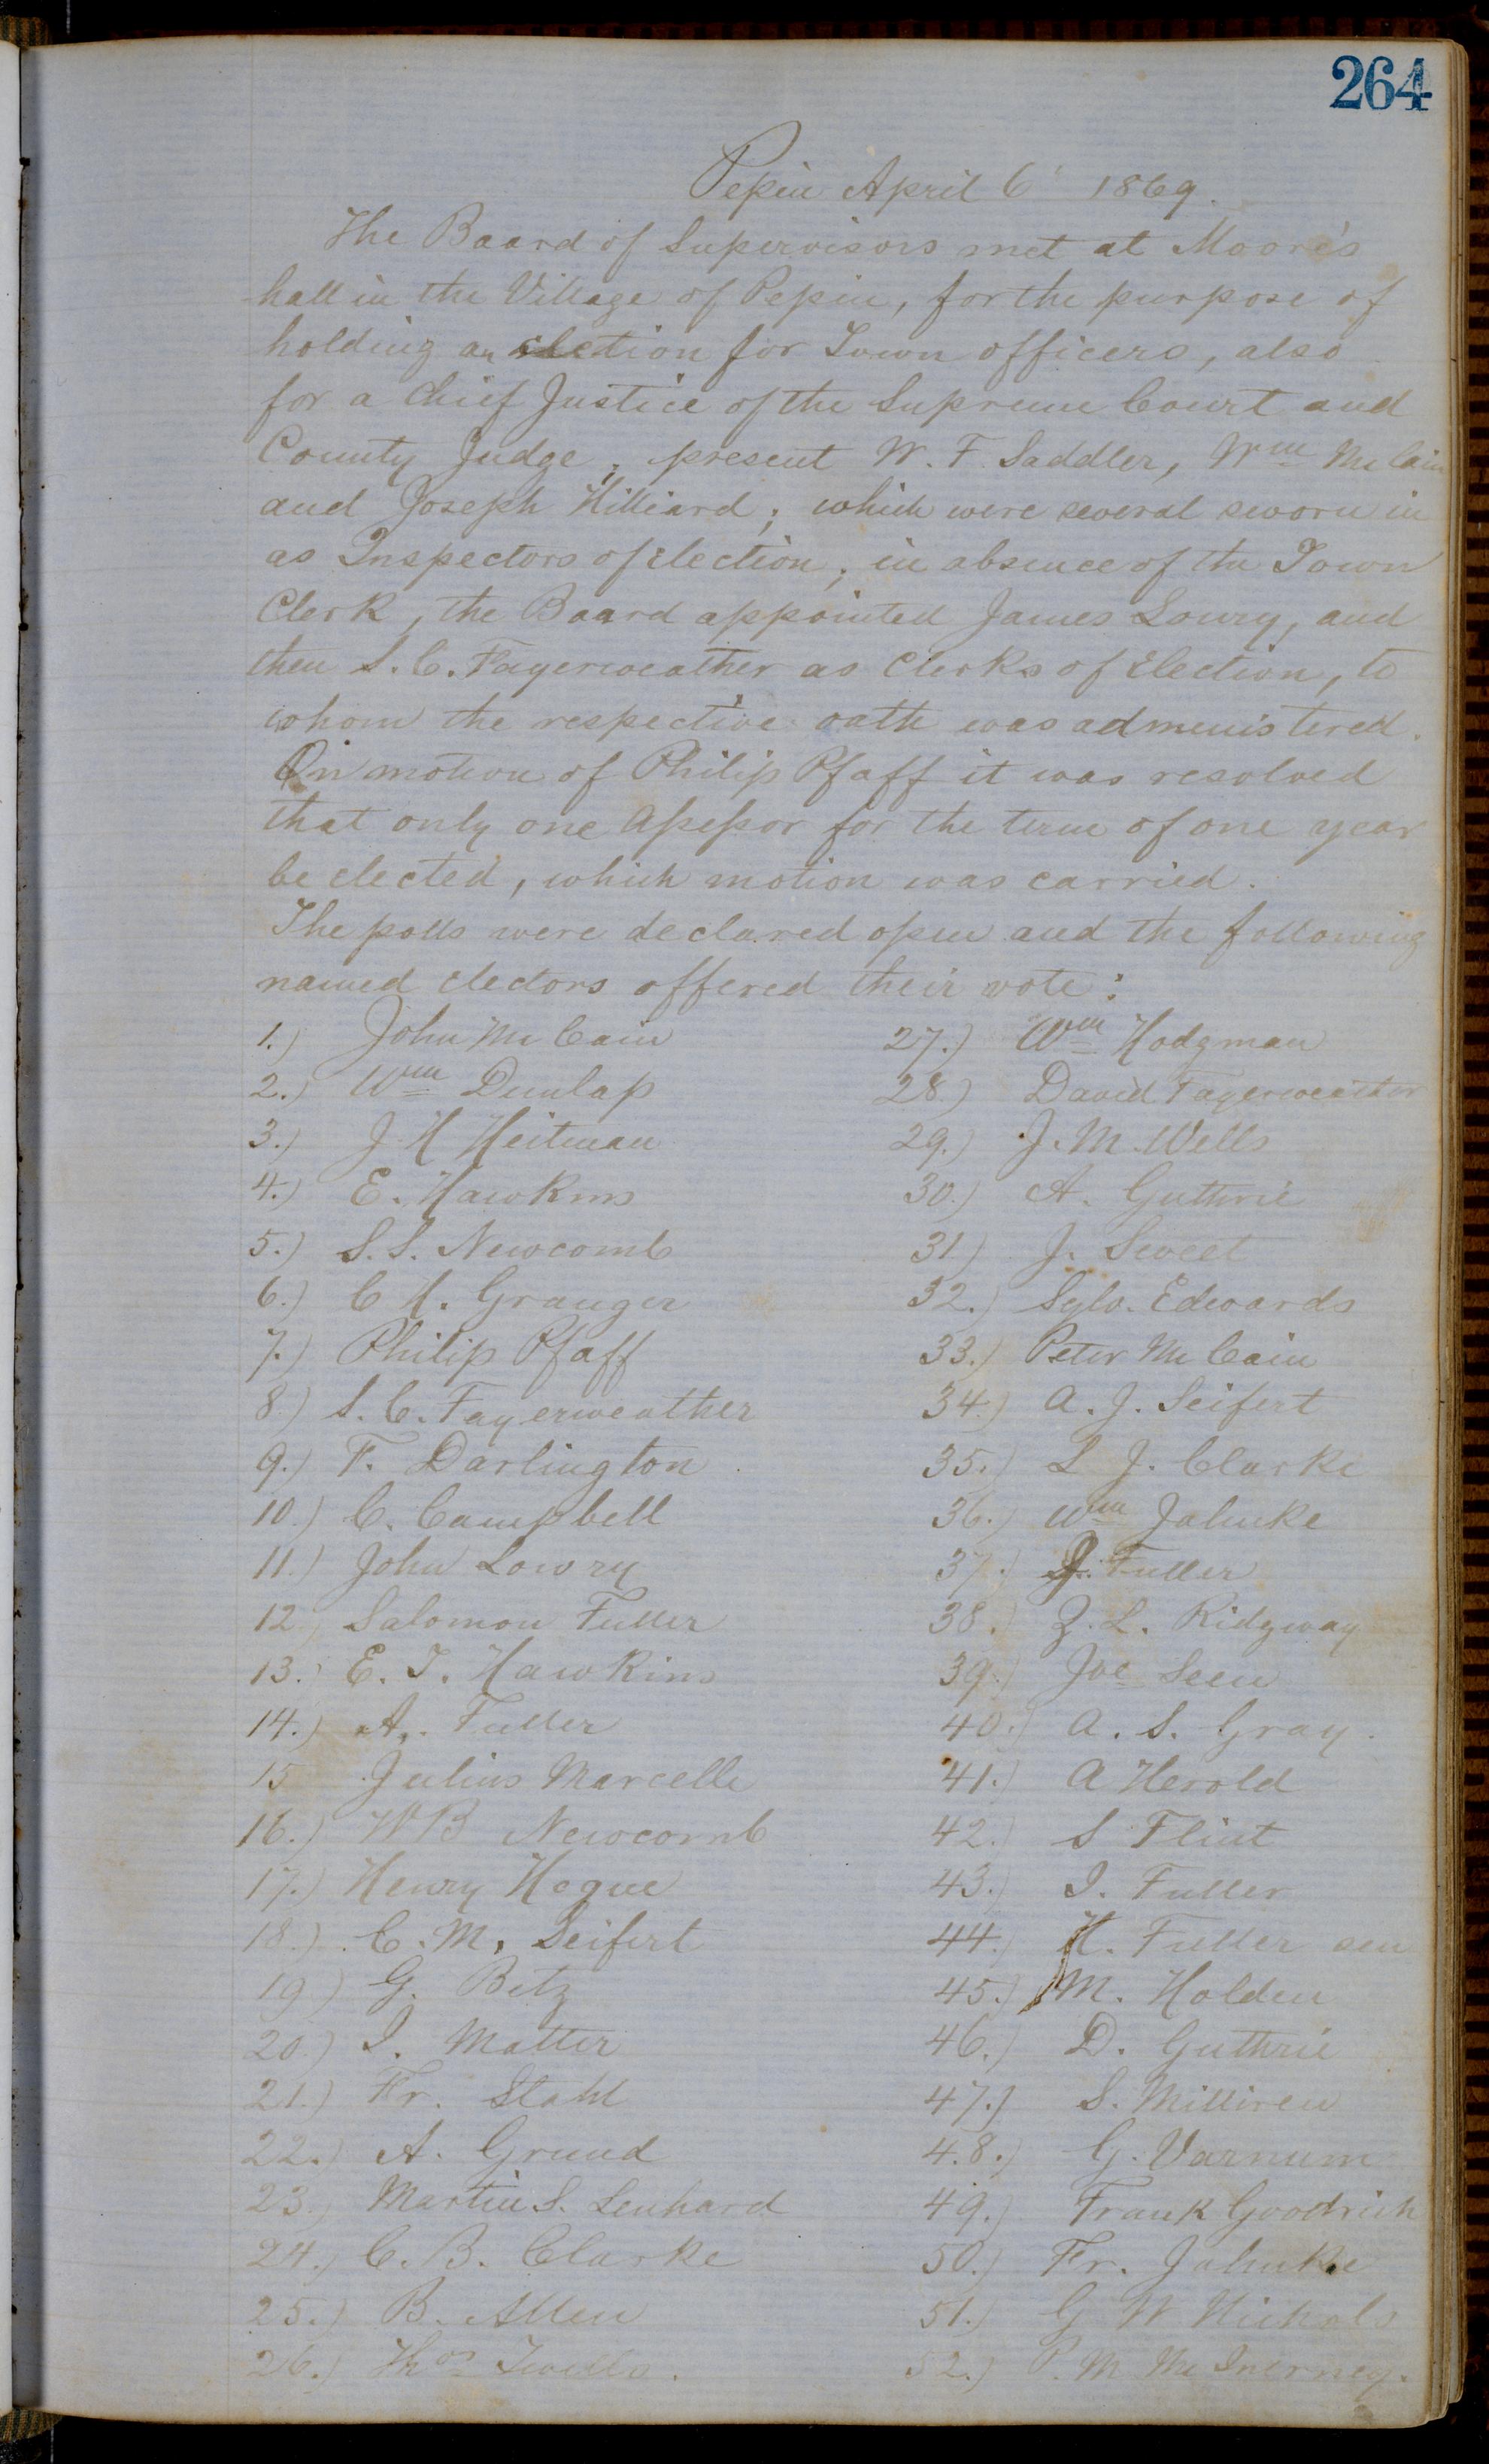 264
Pepin April 6' 1869.
The Board of Supervisors met at Moore's
hall in the Village of Pepin, for the purpose of
holding an election for Town officers, also
for a Chief Justice of the Supreme Court and
County Judge; present W. F. Saddler, Wm McCain
and Joseph Hilliard; which were several sworn in
as Inspectors of Election; in absence of the Town
Clerk, the Board appointed James Lowry, and
then S. C. Fayerweather as Clerks of Election, to
whom the respective oath was admenistered.
On motion of Philip Pfaff it was resolved
that only one Assessor for the term of one year
be elected, which motion was carried.
The polls were declared open and the following
named electors offered their vote:
1.) John McCain
2.) Wm Dunlap
3.) J H Heitman
4.) E. Hawkins
5.) S. S. Newcomb
6.) C H. Granger
7.) Philip Pfaff
8) S. C. Fayerweather
9.) F. Darlington
10.) C. Campbell
11.) John Lowry
12.) Salomon Fuller
13.) E. T. Hawkins
14.) A. Fuller
15 Julius Marcelle
16.) W B Newcomb
17.) Henry Hogue
18.) C. M. Seifert
19) G. Betz
20.) I. Matter
21.) Fr. Stahl
22.) A. Grund
23.) Martin S. Lenhard
24.) C. B. Clarke
25.) B. Allen
26.) Thos
27.) Wm Hodgman
28.) David Fayerweather
29.) J. M. Wells
30.) A. Guthrie
31) J. Sweet
32.) Sylv. Edwards
33.) Peter McCain
34.) A. J. Seifert
35.) L J. Clarke
36.) Wm Jahnke
37.) J. Fuller
38.) Z. L. Ridgway
39.) Joe Seen
40.) A. S. Gray.
41.) A Herold
42.) S Flint
43.) I. Fuller
44.) H. Fuller sen
45.) M. Holden
46.) D. Guthrie
47.) S. Milliren
48.) G. Varnum
49.) Frank Goodrich
50.) Fr. Jahnke
51.) G W Nichols
52.) P. M McInerney.